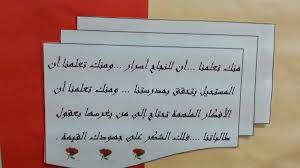 منك تعلمنا ...أن للنجاح أسرار ...ومنك تعلمنا أن
المستحيل يتحقق بمدرستنا ... ومنك تعلمنا أن
الأفكار الملهمة تحتاج إلى من يغرسها بعقول
طالباتنا ....فلك الشكر على جهودك القيمة .